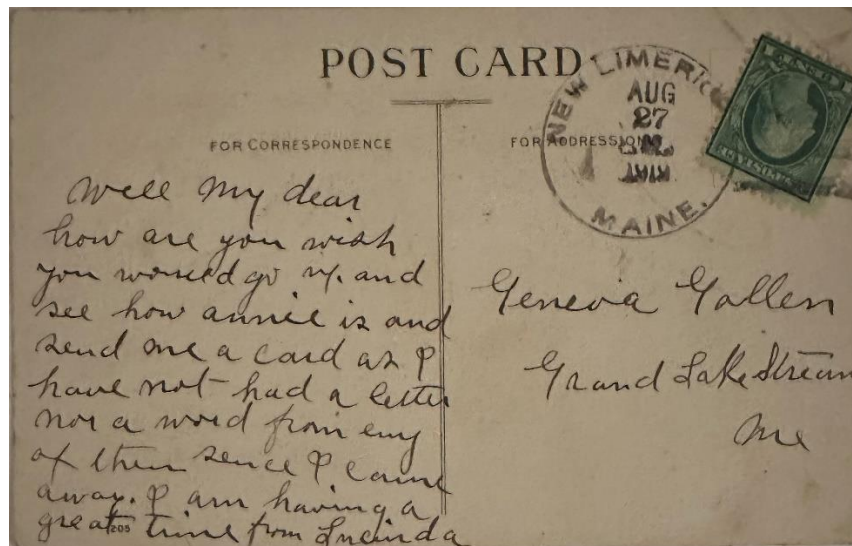 POST CARD
NEW LIMERICK
AUG
27
MAINE.
FOR CORRESPONDENCE
FOR ADDRESSING
Well My dear
how are you wish
you would go up and
see how annie is and
send me a card as I
have not had a letter
nor a word from eny
of them sence I came
away. I am having a
great time from Lucinda
205
Geneva
Grand Lake Stream
Me